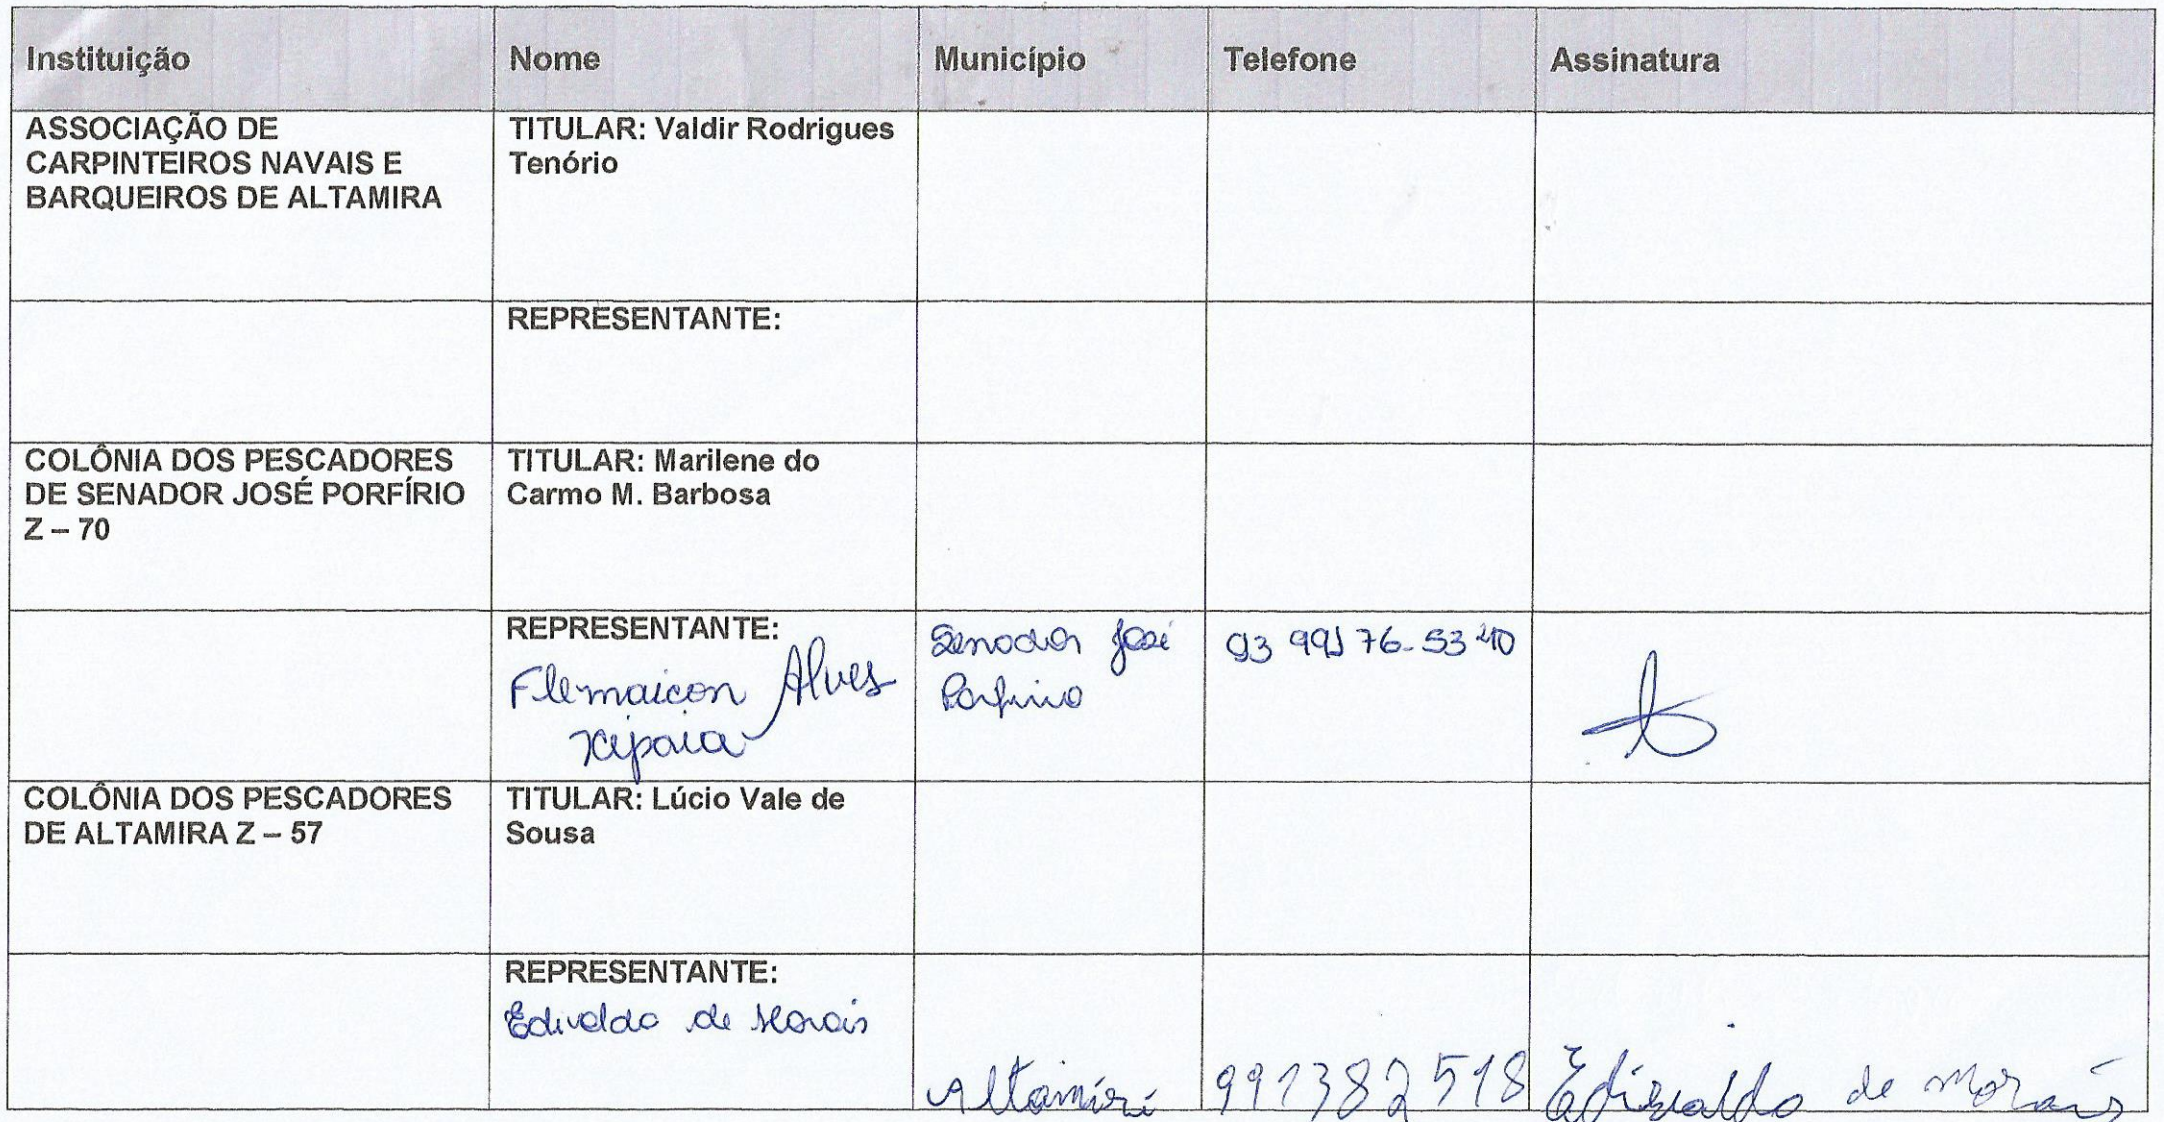 Instituição Nome Município Telefone Assinatura
ASSOCIAÇÃO DE
CARPINTEIROS NAVAIS E
BARQUEIROS DE ALTAMIRA
TITULAR: Valdir Rodrigues
Tenório
REPRESENTANTE:
COLÔNIA DOS PESCADORES
DE SENADOR JOSÉ PORFÍRIO
Z – 70
TITULAR: Marilene do
Carmo M. Barbosa
REPRESENTANTE:
Flemaicon Alves
Xipaia
Senador José
Porfirio
93 99176-5340
COLÔNIA DOS PESCADORES
DE ALTAMIRA Z – 57
TITULAR: Lúcio Vale de
Sousa
REPRESENTANTE:
Edivaldo de Morais
Altamira
991382518
Edivaldo de Morais